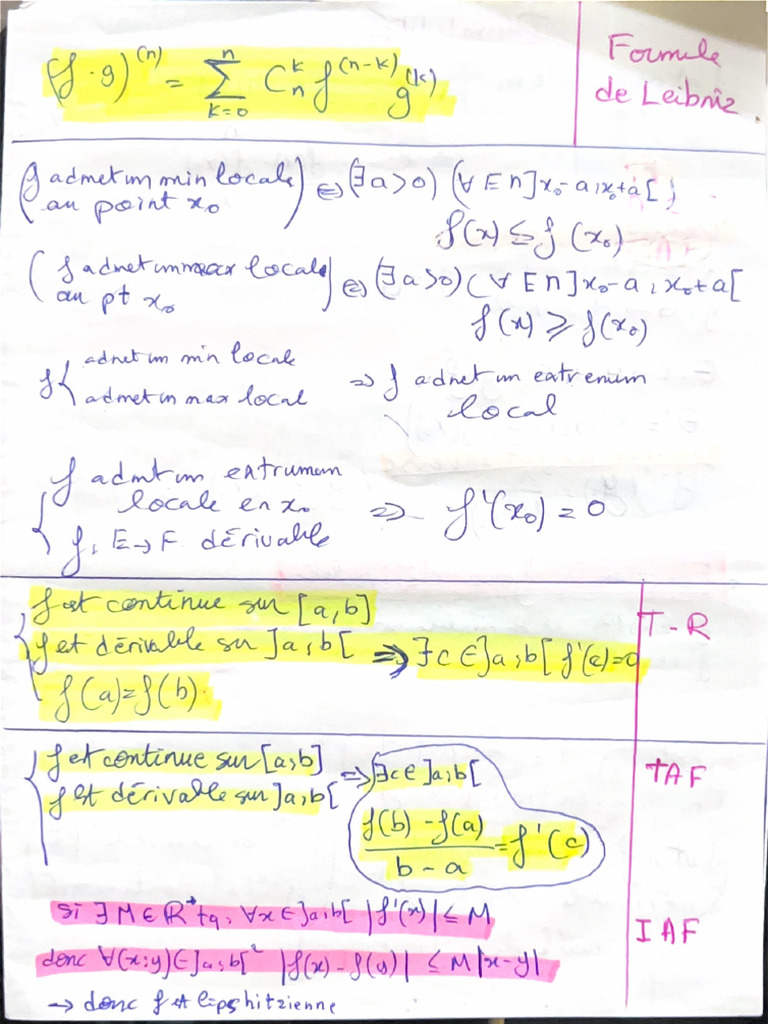 (f · g)^(n) = Σ_{k=0}^{n} C_n^k f^(n-k) g^(k)
Formule
de Leibniz
(f admet un min locale
au point x₀) ⇔ (∃ a > 0) (∀ E ∩ ]x₀ - a ; x₀ + a[ )
f(x) ≤ f(x₀)
(f admet un max locale
au pt x₀) ⇔ (∃ a > 0) ( ∀ E ∩ ]x₀ - a ; x₀ + a[
f(x) ≥ f(x₀)
f { admet un min locale
admet un max local ⇒ f admet un extremum
local
{ f admt un extrumum
locale en x₀ ⇒ f'(x₀) = 0
f : E → F dérivable
{ f est continue sur [a, b]
f est dérivable sur ]a ; b[ ⇒ ∃ c ∈ ]a ; b[ f'(c) = 0
f(a) = f(b).
T-R
{ f est continue sur [a ; b] ⇒ ∃ c ∈ ]a ; b[
f est dérivable sur ]a ; b[
(f(b) - f(a)) / (b - a) = f'(c)
TAF
si ∃ M ∈ ℝ⁺ tq, ∀x ∈ ]a ; b[ |f'(x)| ≤ M
donc ∀(x ; y) ∈ ]a ; b[² |f(x) - f(y)| ≤ M |x - y|
IAF
→ donc f est lipshitzienne